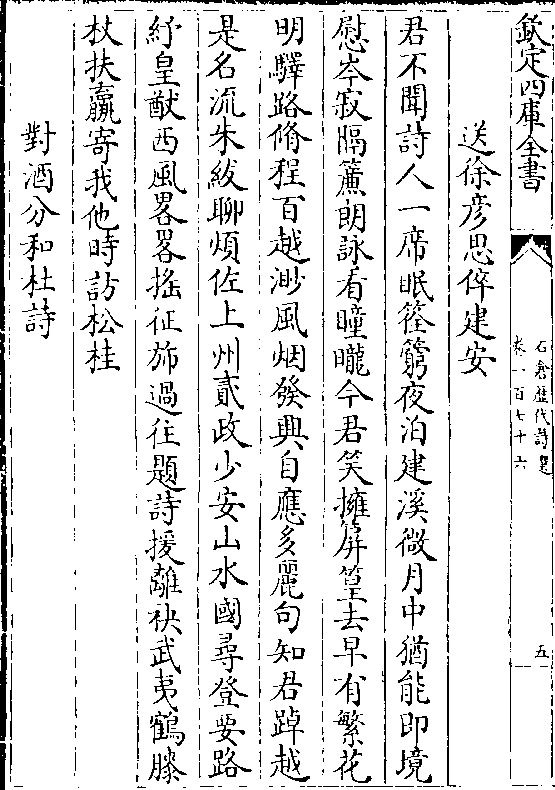 欽定四庫全書
石倉歷代詩選
卷一百七十六
五
送徐彥思倅建安
君不聞詩人一席眠篷窮夜泊建溪微月中猶能即境
慰岑寂隔簾朗詠看曈曨今君笑擁屏篁去早有繁花
明驛路脩程百越渺風烟發興自應多麗句知君踔越
是名流朱紱聊煩佐上州貳政少安山水國尋登要路
紓皇猷西風畧畧搖征斾過往題詩援離袂武夷鶴膝
杖扶羸寄我他時訪松桂
對酒分和杜詩